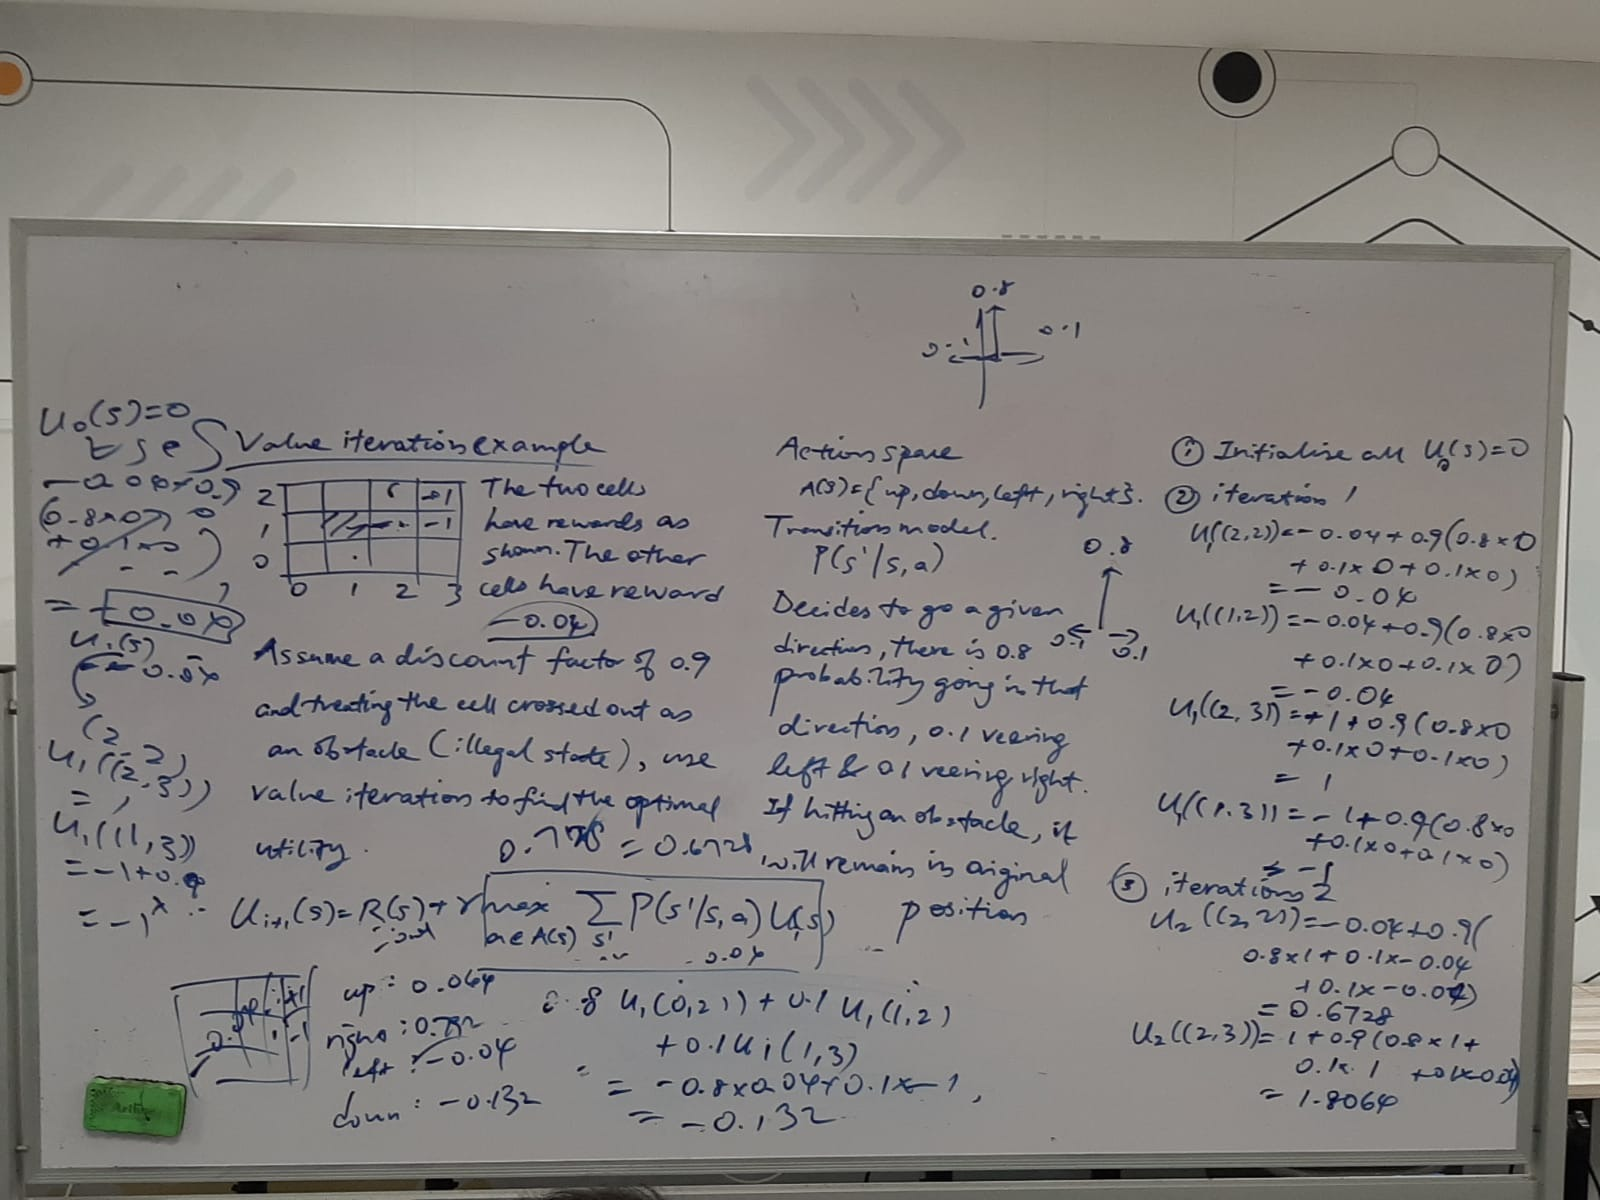 0.8
0.1
U₀(s)=0
∀ s ∈ S
Value iteration example
2
+1
1
-1
0
0 1 2 3
The two cells
have rewards as
shown. The other
cells have reward
-0.04
Assume a discount factor of 0.9
and treating the cell crossed out as
an obstacle (illegal state), use
value iteration to find the optimal
utility.
= 0.6728
Uᵢ₊₁(s) = R(s) + γ max Σ P(s'|s,a) U(s)
a∈A(s) s'
-0.04
= -0.04
U₁(s)
(2,2)
U₁((2,3))
= 1
U₁((1,3))
= -1+0.9
= -1
+1
-1
up: 0.064
left: -0.04
down: -0.132
0.8 U₁(0,2)) + 0.1 U₁(1,2)
+0.1U₁(1,3)
= -0.8x0.04+0.1x-1
= -0.132
Action space
A(s)={up, down, left, right}.
Transition model.
P(s'|s,a)
Decides to go a given
direction, there is 0.8
probability going in that
direction, 0.1 veering
left & 0.1 veering right.
If hitting an obstacle, it
will remain in original
position
0.8
0.1 0.1
① Initialise all U₀(s)=0
② iteration 1
U₁((2,2))=-0.04+0.9(0.8x0
+0.1x0+0.1x0)
=-0.04
U₁((1,2))=-0.04+0.9(0.8x0
+0.1x0+0.1x0)
=-0.04
U₁((2,3))=+1+0.9(0.8x0
+0.1x0+0.1x0)
= 1
U₁((1,3))=-1+0.9(0.8x0
+0.1x0+0.1x0)
= -1
③ iteration 2
U₂((2,2))=-0.04+0.9(
0.8x1+0.1x-0.04
+0.1x-0.04)
= 0.6728
U₂((2,3))=1+0.9(0.8x1+
0.1x1 +0.1x-0.04)
= 1.8064